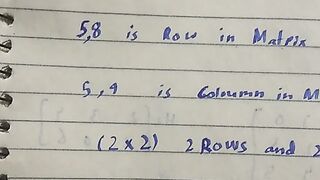 5,8 is Row in Matrix
5,9 is Column in M
(2x2) 2 Rows and 2